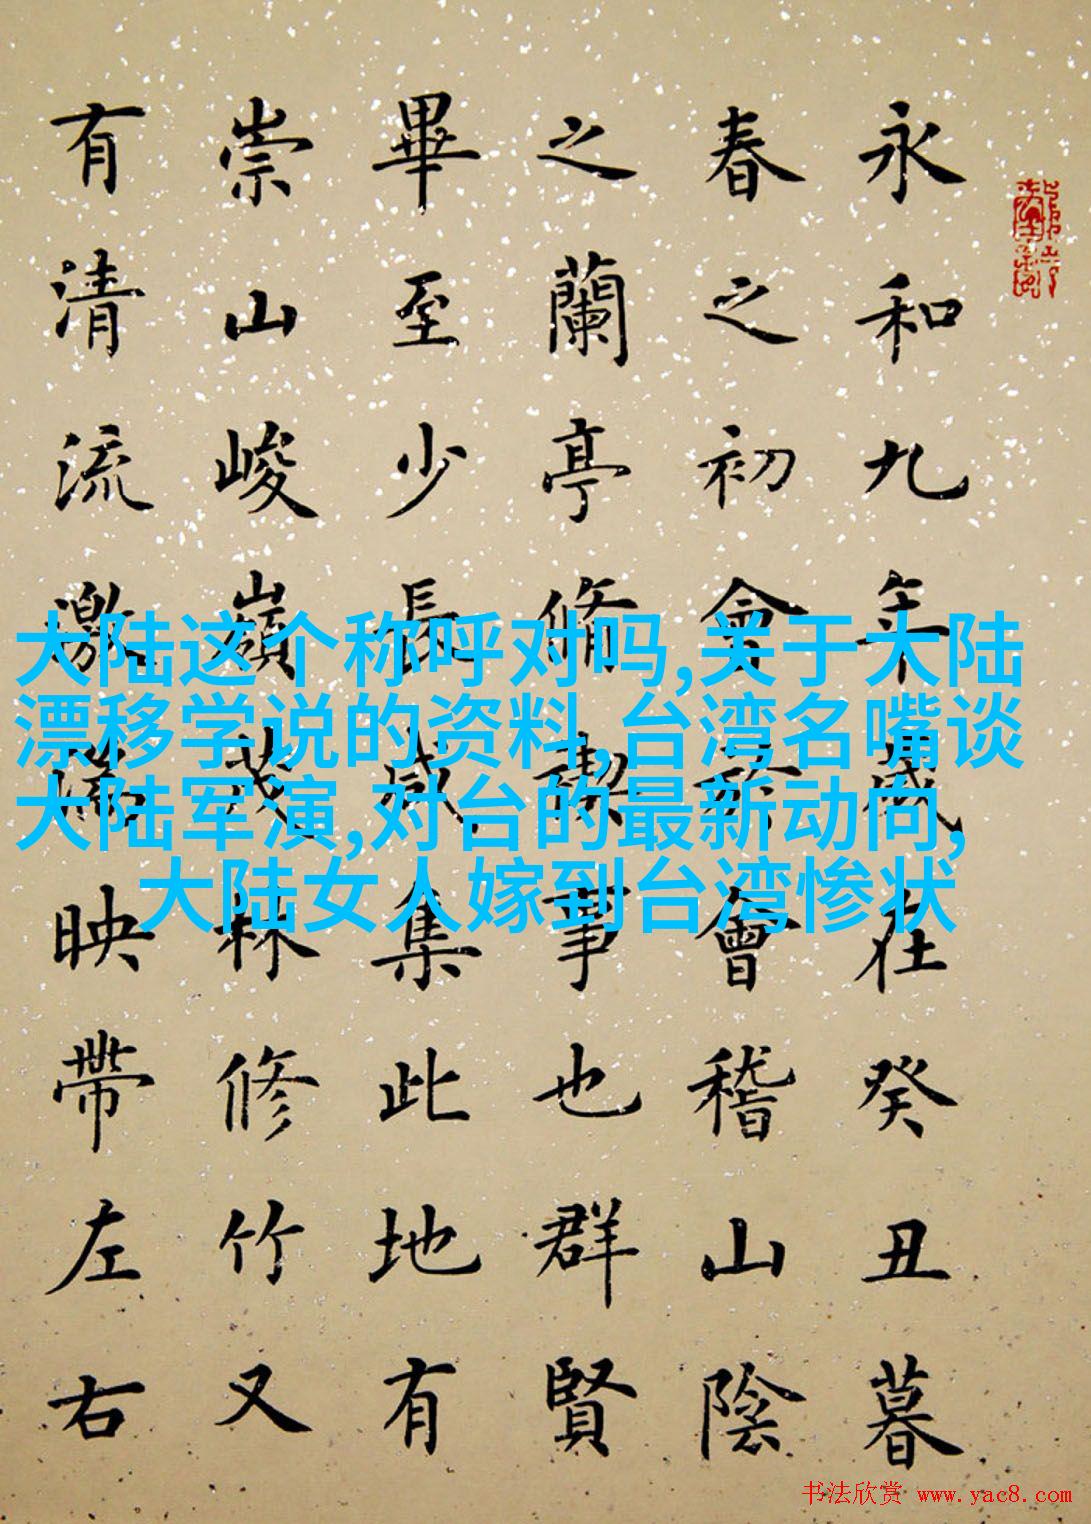 永和九年歲在癸丑暮
春之初會於會稽山陰
之蘭亭脩禊事也群賢
畢至少長咸集此地有
崇山峻嶺茂林修竹又
有清流激湍映帶左右
大陆这个称呼对吗,关于大陆
漂移学说的资料,台湾名嘴谈
大陆军演,对台的最新动向,
大陆女人嫁到台湾惨状
书法欣赏 www.yac8.com